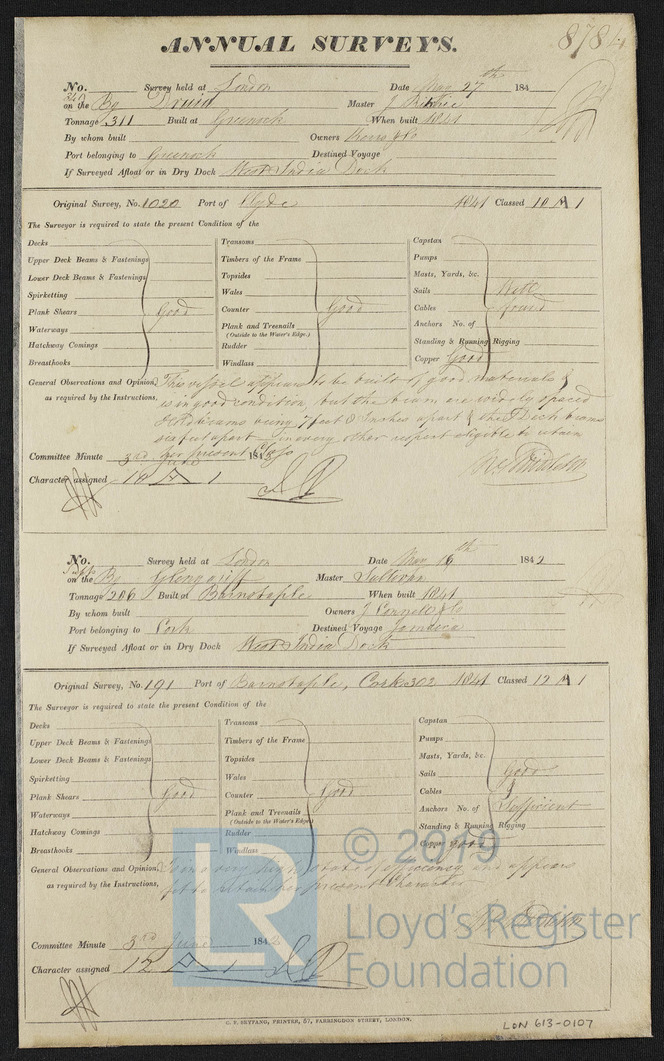 ANNUAL SURVEYS.
8784
No. Survey held at London Date May 27th 184
on the Bg Druid Master J Ritchie
Tonnage 311 Built at Greenock When built 1841
By whom built Owners
Port belonging to Greenock Destined Voyage
If Surveyed Afloat or in Dry Dock West India Dock
Original Survey, No. 1020 Port of Clyde 1841 Classed 10 A 1
The Surveyor is required to state the present Condition of the
Decks Transoms Capstan
Upper Deck Beams & Fastenings Timbers of the Frame Pumps
Lower Deck Beams & Fastenings Topsides Masts, Yards, &c.
Spirketting Wales Sails Well
Plank Shears Good Counter Good Cables found
Waterways Plank and Treenails Anchors No. of
(Outside to the Water's Edge.)
Hatchway Comings Rudder Standing & Running Rigging
Breasthooks Windlass Copper Good
General Observations and Opinion, This vessel appears to be built of good materials &
as required by the Instructions, is in good condition, but the beams are widely spaced
Hold beams being 7 feet 8 Inches apart & the Deck beams
six feet apart in every other respect eligible to retain
her present Class
Committee Minute 3rd June 184
Character assigned 10 A 1
No. Survey held at London Date May 16th 1842
on the Bg Glengariff Master Sullivan
Tonnage 206 Built at Barnstaple When built 1841
By whom built Owners J Connell & Co
Port belonging to Cork Destined Voyage Jamaica
If Surveyed Afloat or in Dry Dock West India Dock
Original Survey, No. 191 Port of Barnstaple, Cork 302 1841 Classed 12 A 1
The Surveyor is required to state the present Condition of the
Decks Transoms Capstan
Upper Deck Beams & Fastenings Timbers of the Frame Pumps
Lower Deck Beams & Fastenings Topsides Masts, Yards, &c.
Spirketting Wales Sails Good
Plank Shears Good Counter Good Cables &
Waterways Plank and Treenails Anchors No. of Sufficient
(Outside to the Water's Edge.)
Hatchway Comings Rudder Standing & Running Rigging
Breasthooks Windlass Copper Good
General Observations and Opinion, Is in a very high state of efficiency and appears
as required by the Instructions, fit to retain her present Character
Committee Minute 3rd June 1842
Character assigned 12 A 1
LR © 2019
Lloyd's Register
Foundation
C. F. SEYFANG, PRINTER, 57, FARRINGDON STREET, LONDON.
LON 613-0107